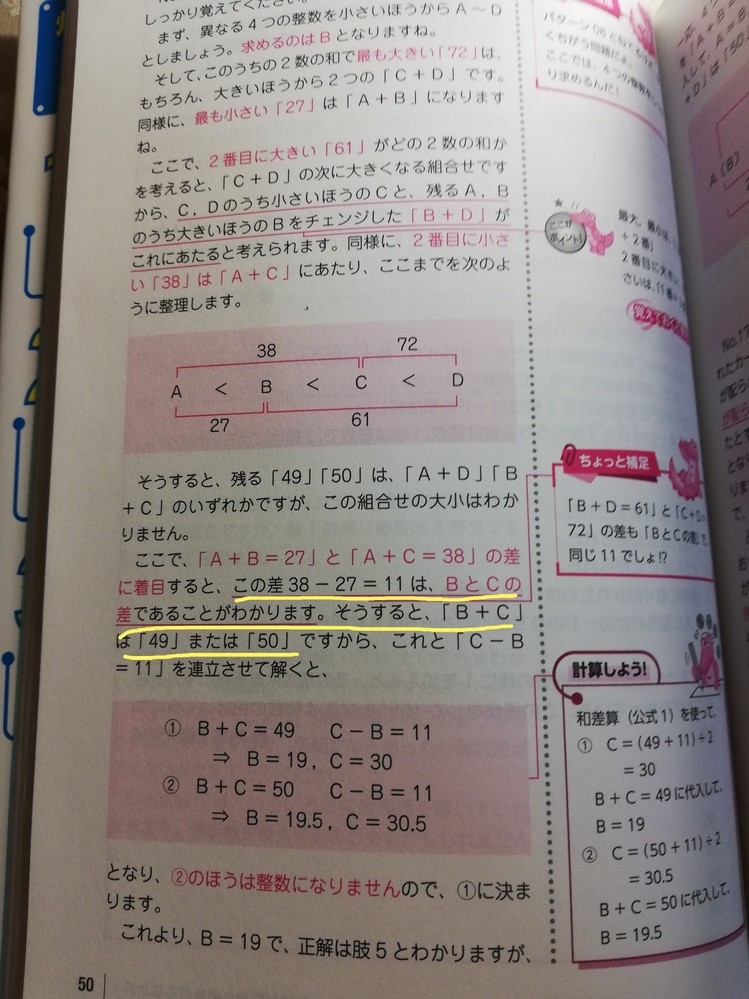 しっかり覚えてください。
まず、異なる4つの整数を小さいほうからA～D
としましょう。求めるのはBとなりますね。
そして、このうちの2数の和で最も大きい「72」は、
もちろん、大きいほうから2つの「C＋D」です。
同様に、最も小さい「27」は「A＋B」になります
ね。
ここで、2番目に大きい「61」がどの2数の和か
を考えると、「C＋D」の次に大きくなる組合せです
から、C，Dのうち小さいほうのCと、残るA，B
のうち大きいほうのBをチェンジした「B＋D」が
これにあたると考えられます。同様に、2番目に小さ
い「38」は「A＋C」にあたり、ここまでを次のよ
うに整理します。
38 72
A ＜ B ＜ C ＜ D
27 61
そうすると、残る「49」「50」は、「A＋D」「B
＋C」のいずれかですが、この組合せの大小はわか
りません。
ここで、「A＋B＝27」と「A＋C＝38」の差
に着目すると、この差38－27＝11は、BとCの
差であることがわかります。そうすると、「B＋C」
は「49」または「50」ですから、これと「C－B
＝11」を連立させて解くと、
① B＋C＝49 C－B＝11
⇒ B＝19，C＝30
② B＋C＝50 C－B＝11
⇒ B＝19.5，C＝30.5
となり、②のほうは整数になりませんので、①に決ま
ります。
これより、B＝19で、正解は肢5とわかりますが、
50
くちがう問題だよ。
ここでは、4つの整数を
り求めるんだ！
ここが
ポイント！
最大、最小は
＋2番」
2番目に大き
さいは、
ちょっと補足
「B＋D＝61」と「C＋D＝
72」の差も「BとCの差」で
同じ11でしょ!?
計算しよう！
和差算（公式1）を使って、
① C＝(49＋11)÷2
＝30
B＋C＝49に代入して、
B＝19
② C＝(50＋11)÷2
＝30.5
B＋C＝50に代入して、
B＝19.5
A（B）